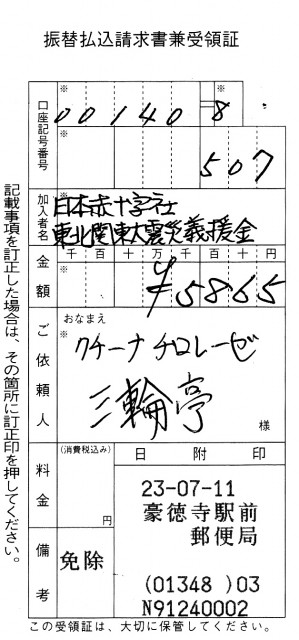 振替払込請求書兼受領証
口座記号番号
※
00140 8
※
507
加入者名
※
日本赤十字社
東北関東大震災義援金
金額
千 百 十 万 千 百 十 円
※
¥5865
ご依頼人
おなまえ
※
クチーナ チロレーゼ
三輪亭
様
料金
(消費税込み)
円
備考
免除
日 附 印
23-07-11
豪徳寺駅前
郵便局
(01348 )03
N91240002
記載事項を訂正した場合は、その箇所に訂正印を押してください。
この受領証は、大切に保管してください。